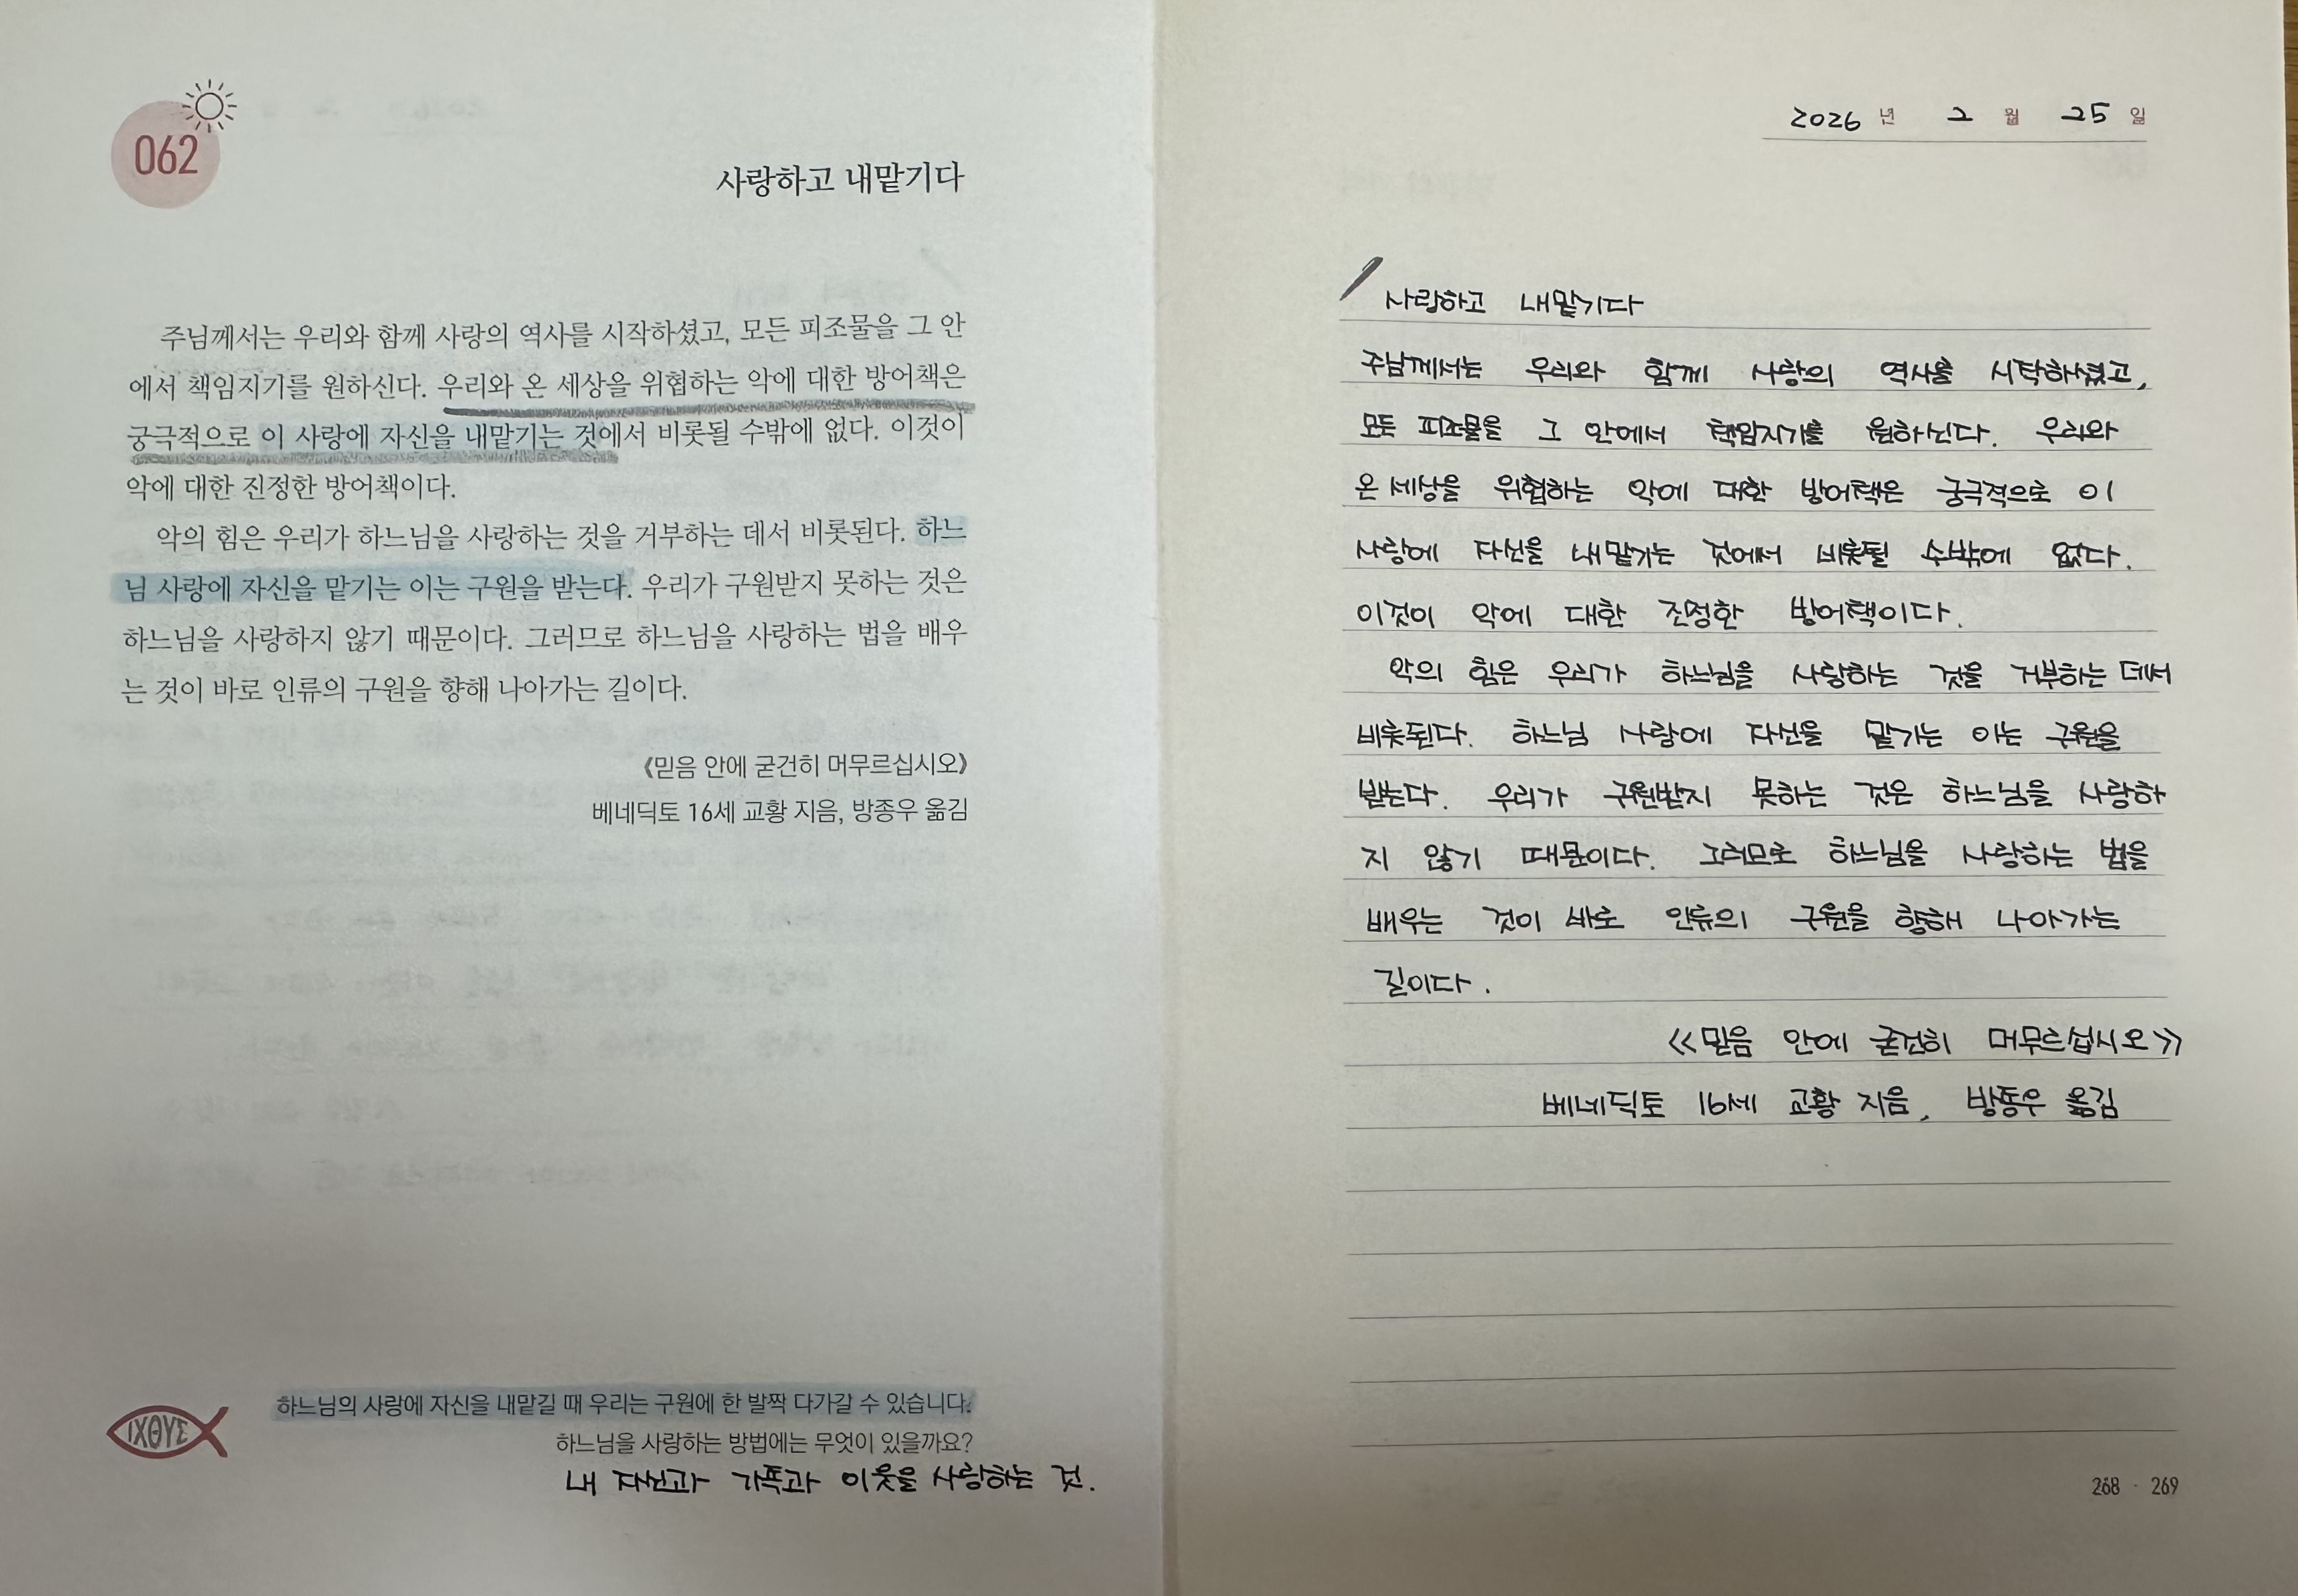 062
사랑하고 내맡기다
주님께서는 우리와 함께 사랑의 역사를 시작하셨고, 모든 피조물을 그 안
에서 책임지기를 원하신다. 우리와 온 세상을 위협하는 악에 대한 방어책은
궁극적으로 이 사랑에 자신을 내맡기는 것에서 비롯될 수밖에 없다. 이것이
악에 대한 진정한 방어책이다.
악의 힘은 우리가 하느님을 사랑하는 것을 거부하는 데서 비롯된다. 하느
님 사랑에 자신을 맡기는 이는 구원을 받는다. 우리가 구원받지 못하는 것은
하느님을 사랑하지 않기 때문이다. 그러므로 하느님을 사랑하는 법을 배우
는 것이 바로 인류의 구원을 향해 나아가는 길이다.
《믿음 안에 굳건히 머무르십시오》
베네딕토 16세 교황 지음, 방종우 옮김
ΙΧΘΥΣ
하느님의 사랑에 자신을 내맡길 때 우리는 구원에 한 발짝 다가갈 수 있습니다.
하느님을 사랑하는 방법에는 무엇이 있을까요?
내 자신과 가족과 이웃을 사랑하는 것.
2026 년 2 월 25 일
사랑하고 내맡기다
주님께서는 우리와 함께 사랑의 역사를 시작하셨고,
모든 피조물을 그 안에서 책임지기를 원하신다. 우리와
온 세상을 위협하는 악에 대한 방어책은 궁극적으로 이
사랑에 자신을 내맡기는 것에서 비롯될 수밖에 없다.
이것이 악에 대한 진정한 방어책이다.
악의 힘은 우리가 하느님을 사랑하는 것을 거부하는 데서
비롯된다. 하느님 사랑에 자신을 맡기는 이는 구원을
받는다. 우리가 구원받지 못하는 것은 하느님을 사랑하
지 않기 때문이다. 그러므로 하느님을 사랑하는 법을
배우는 것이 바로 인류의 구원을 향해 나아가는
길이다.
《믿음 안에 굳건히 머무르십시오》
베네딕토 16세 교황 지음, 방종우 옮김
268 · 269